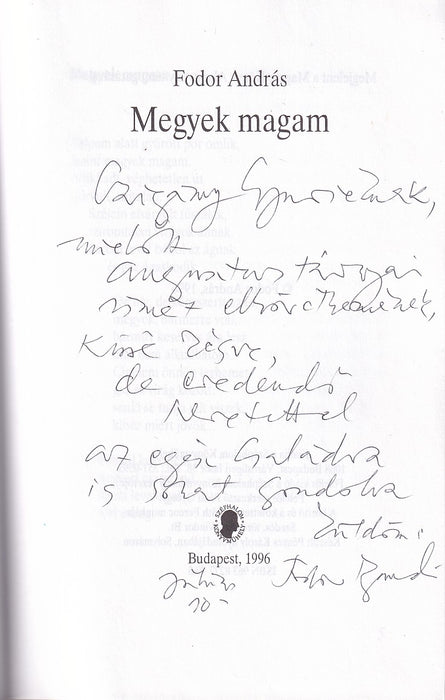 Fodor András
Megyek magam
Czigány Gyuriéknak,
mielőtt
augusztus távozói
ismét elkövetkeznének,
Kissé késve,
de eredendő
szeretettel
az egész családra
is sokat gondolva
küldöm:
SZÉPHALOM
KÖNYVMŰHELY
Budapest, 1996
Július
10
Fodor András